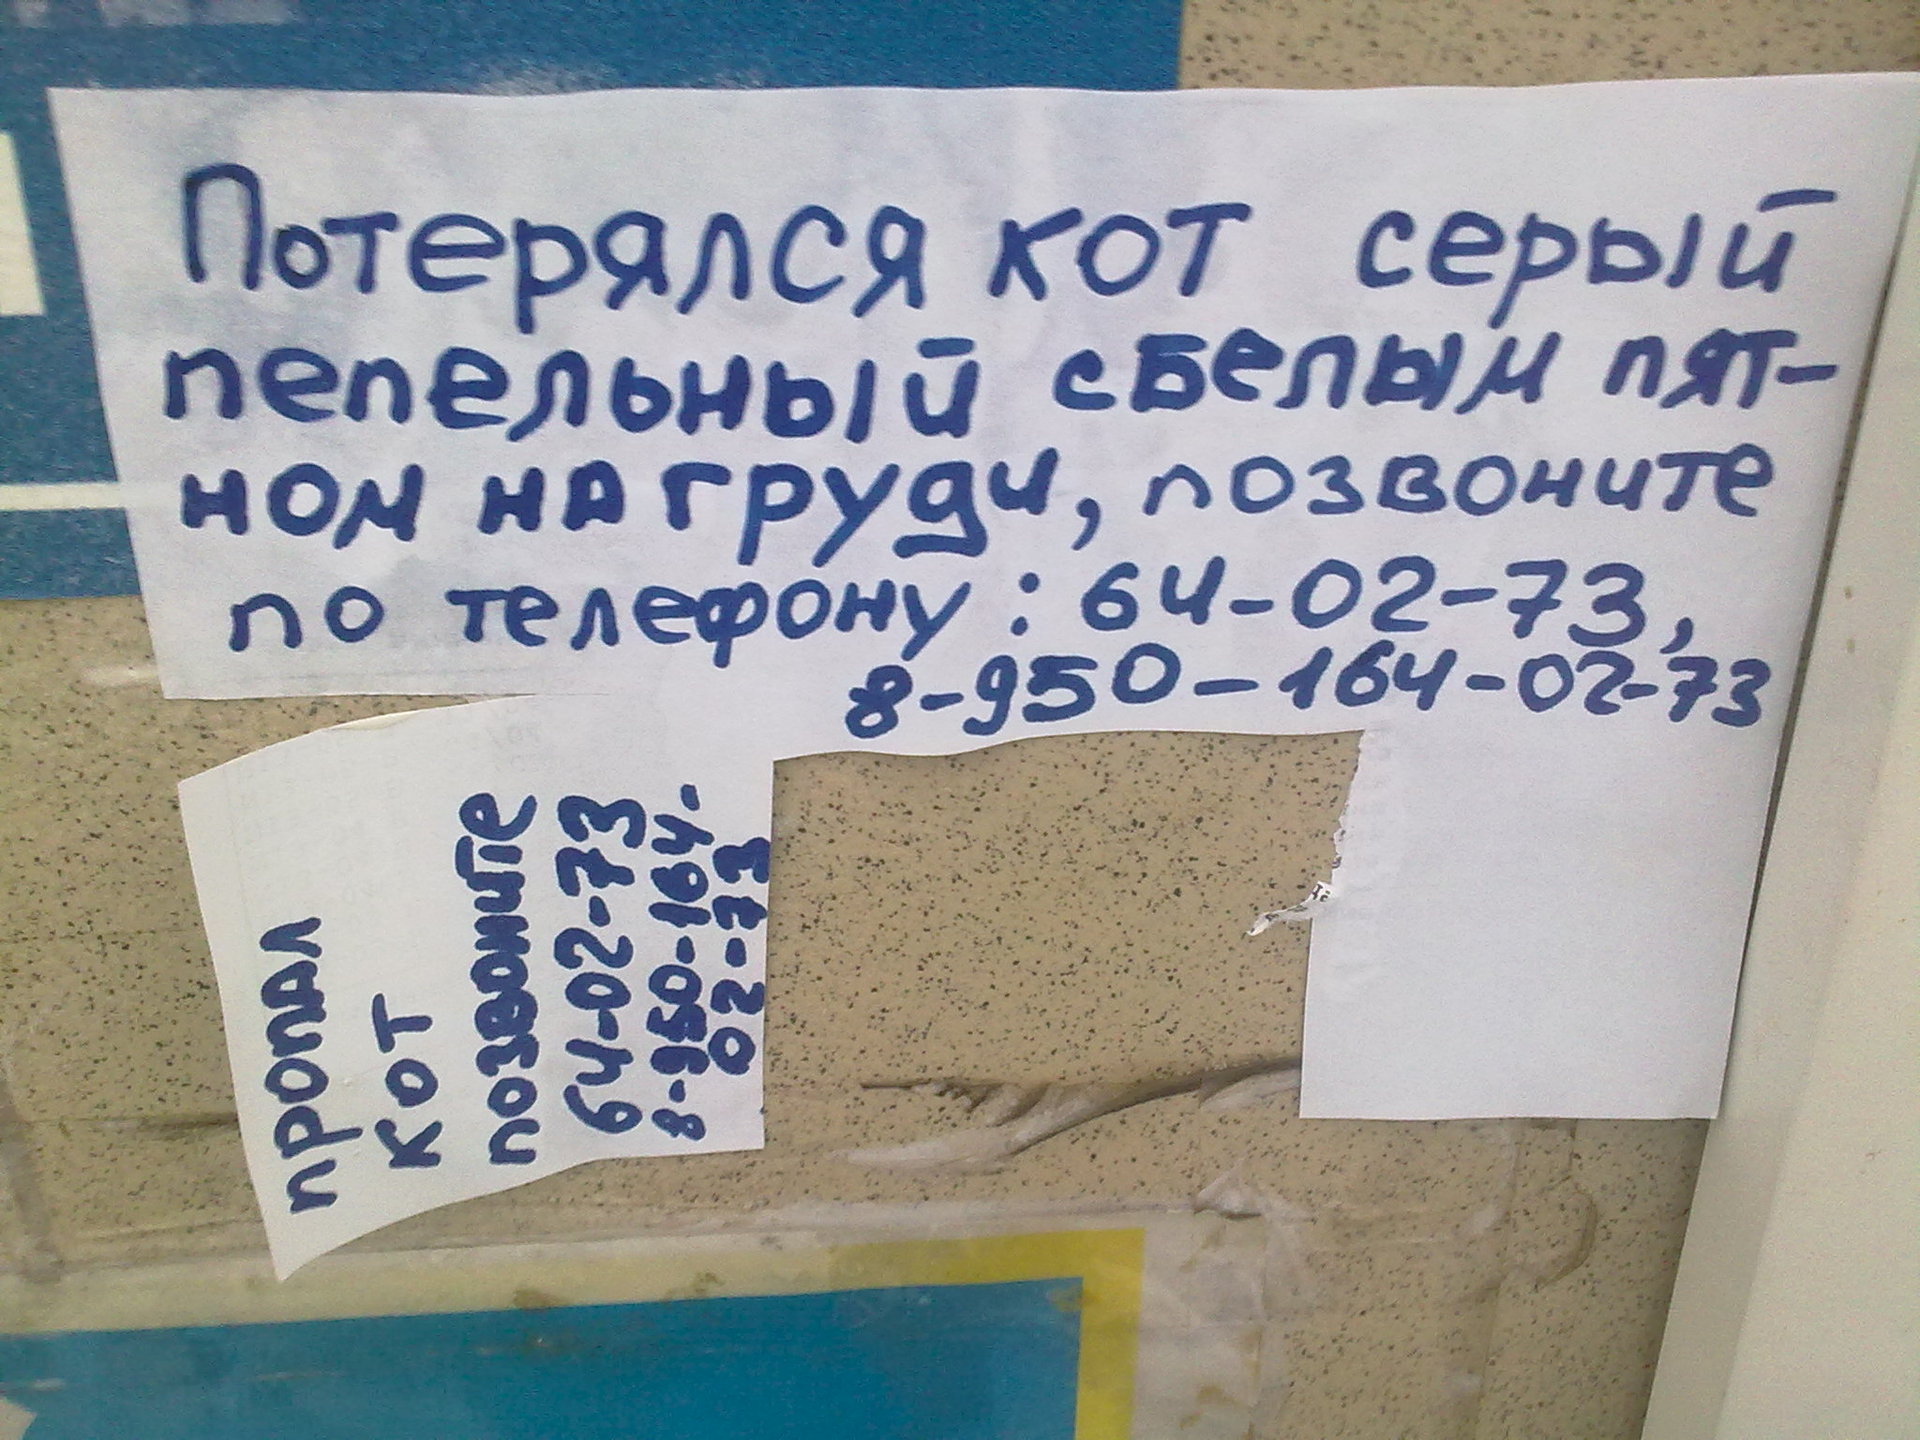 Потерялся кот серый
пепельный с белым пят-
ном на груди, позвоните
по телефону: 64-02-73,
8-950-164-02-73
пропал
кот
позвоните
64-02-73
8-950-164-
02-73